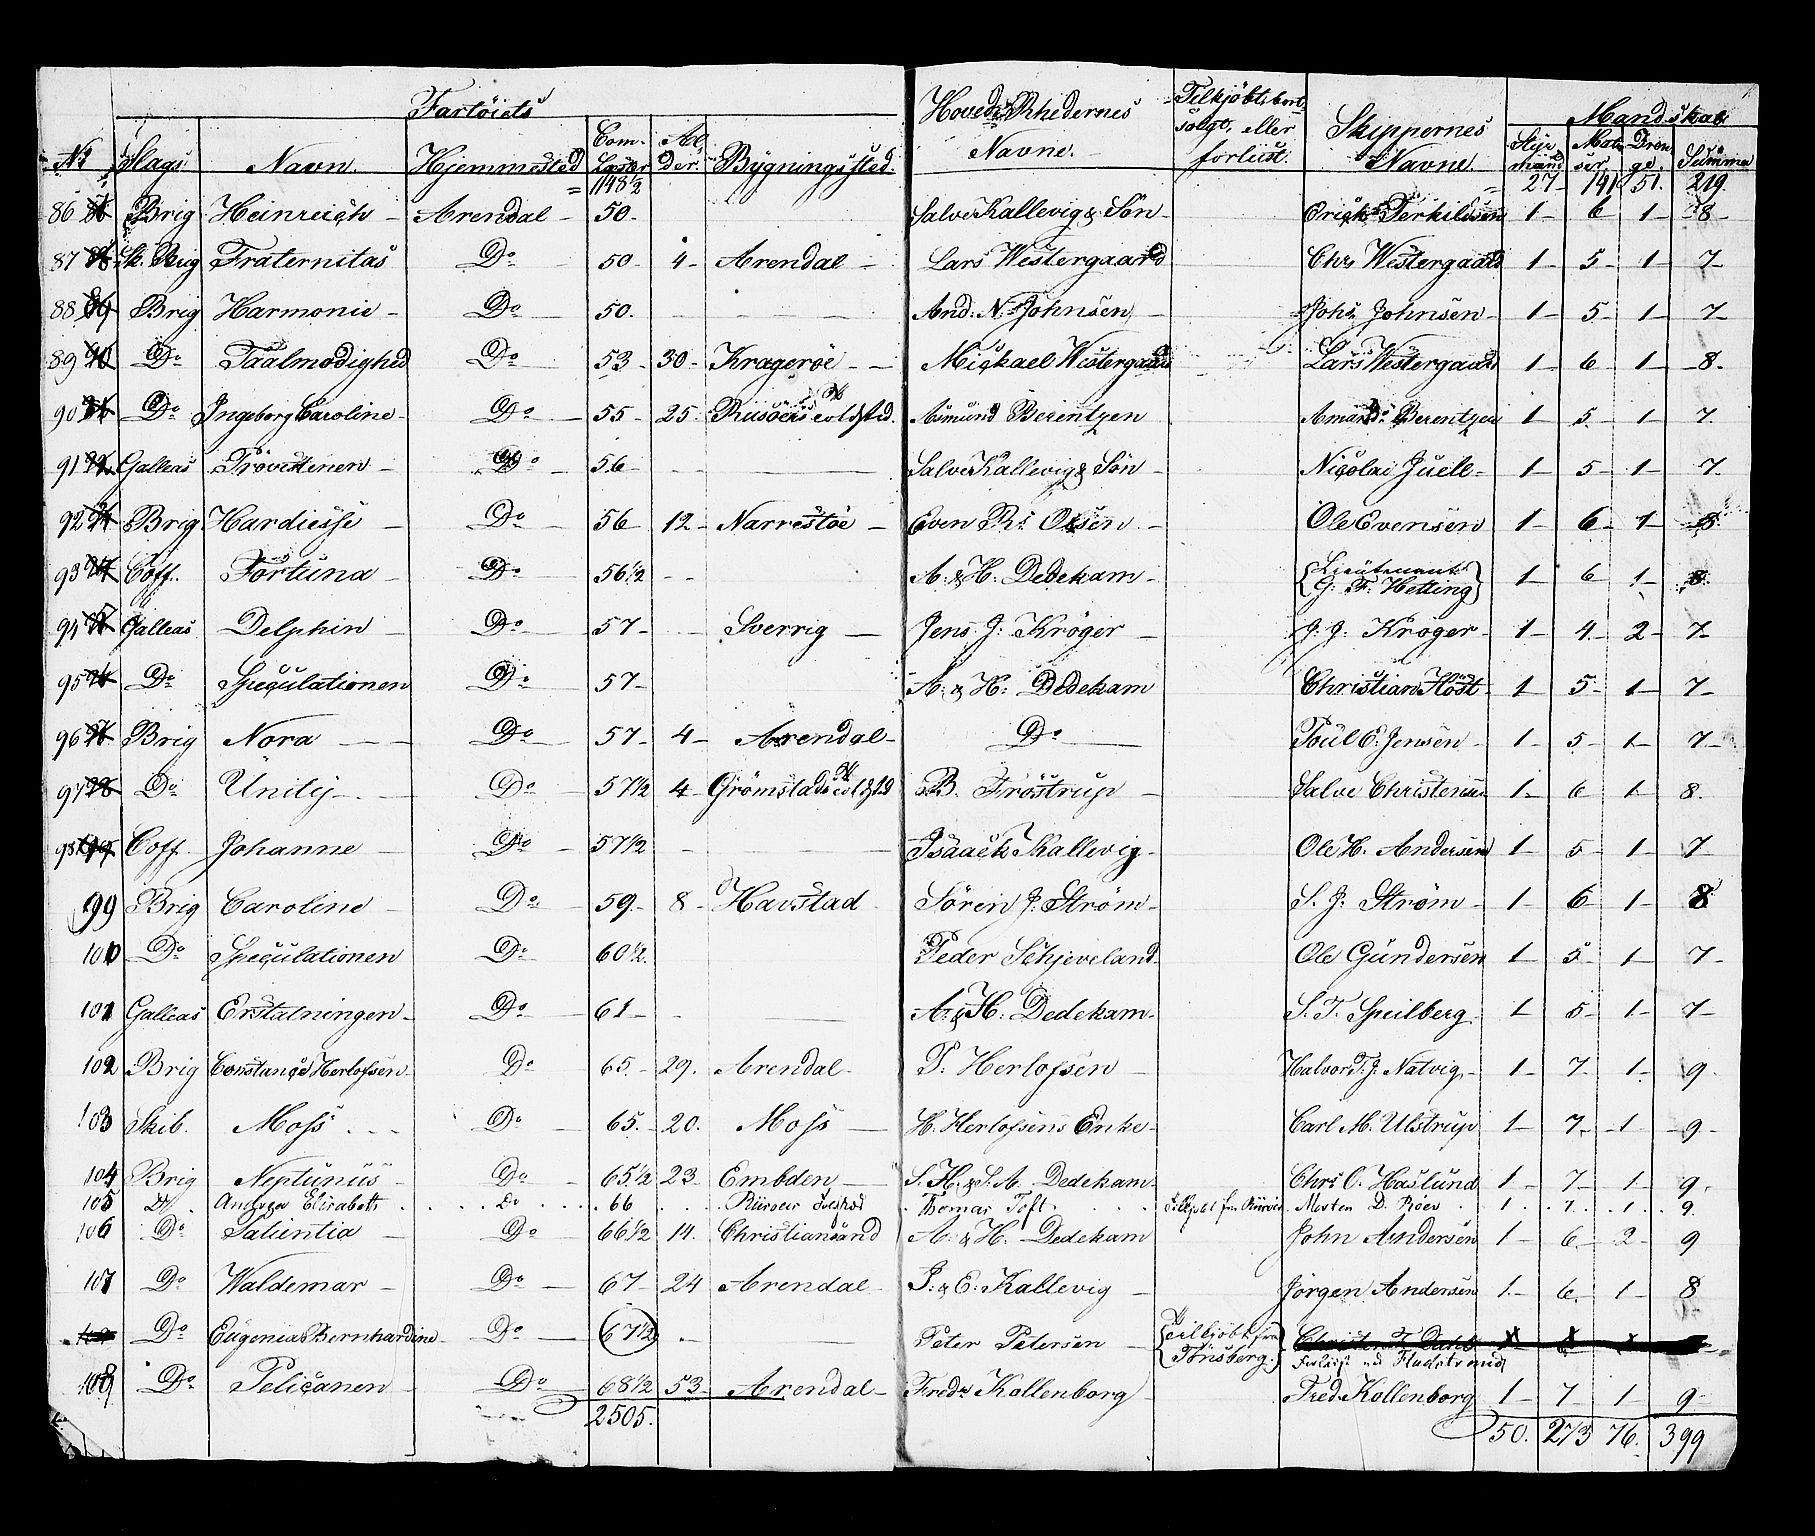 Fartöiets
Hoved Rhedernes Navne.
Tilkjöbt, bortsolgt, eller forliist.
Skippernes Navne.
Mandskab
No Slags Navn. Hjemmested Com. Læster Alder. Bygningssted. Styrmænd Matroser Drenge. Summa
1148½ 27- 141 51. 219
86 Brig Heinreich - Arendal - 50- Salve Kallevig & Sön - Erich Terkildsen 1- 6 1- 8-
87 Sk. Brig Fraternitas Do 50 4- Arendal - Lars Westergaard Chr. Westergaard 1- 5- 1- 7-
88 Brig Harmonie - Do 50. - - - And: N. Johnsen Johs Johnsen - 1- 5- 1- 7-
89 Do Taalmodighed Do 53- 30- Kragerøe - - Mickael Westergaard Lars Westergaard 1- 6- 1- 8-
90 Do Ingeborg Caroline - Do 55- 25- Riisøers Toldsted. Asmund Berentzen Berentzen 1 5- 1- 7-
91 Galleas Prövestenen - Do 56- - - Salve Kallevig & Sön - Nicolai Juell - 1- 5- 1- 7-
92 Brig Hardiesse - Do 56- 12- Narrestøe - Even Rs Olsen - Ole Evensen 1- 6- 1- 8
93 Coff. Fortuna - Do 56½ - - A: & H: Dedekam - {Lieutenant G. F. Hetting} 1- 6- 1- 8.
94 Galleas Delphin - Do 57- - - Sverrig - Jens J: Kröger - J. J. Kröger - 1- 4- 2- 7-
95 Do Speculationen Do 57- A: & H: Dedekam Christian Höst - 1 5- 1- 7
96 Brig Nora - - Do 57- 4- Arendal - Do Poul E. Jensen - 1- 5- 1- 7-
97 Do Unity - - Do 57½ 4- Grömstads Toldsted B. Fröstrup - Salve Christensen 1- 6- 1- 8.
98 Coff. Johanne - Do 57½ - - Isaach Kallevig - Ole H. Andersen 1- 5- 1- 7
99 Brig Caroline - Do 59- 8- Havstad - Sören J: Ström - S. J: Ström - 1- 6- 1- 8
100 Do Speculationen Do 60½. Peder Schjeveland - Ole Gundersen 1- 5- 1- 7-
101 Galleas Erstatningen - Do 61- - - A. & H: Dedekam - S. T. Speilberg 1- 5- 1- 7-
102 Brig Constance Herlofsen - Do 65.- 29. Arendal - P. Herlofsen - Halvor T. J. Natvig - 1- 7- 1- 9-
103 Skib. Moss - - Do 65.- 20. Moss - H. Herlofsens Enke - Carl M. Ulstrup 1- 7- 1- 9-
104 Brig Neptunus - Do 65½ 23. Embden - S. H. & S. A. Dedekam - Chrs O. Haslund 1- 7- 1- 9-
105 Do. Andrea Elisabeth Do 66 Thomas Toft. Tilkjöbt fra Morten D. Röev 1. 7. 1. 9.
106 Do Salientia - Do 66½ 14. Christiansand A: & H. Dedekam John Andersen 1- 6- 2- 9
107 Do Waldemar - Do 67- 24 Arendal - J: & E: Kallevig - Jørgen Andersen 1- 6- 1- 8
Do Eugenia Bernhardine Do 67½ - Peter Petersen {Tilkjöbt fra Tönsberg.} Christen T. Dahl
Forliist ved Fladstrand
108 Do Pelicanen - Do 68½ 53- Arendal - Fredr Kallenborg Fredr Kollenborg 1- 7- 1- 9-
2505. 50. 273 76. 399